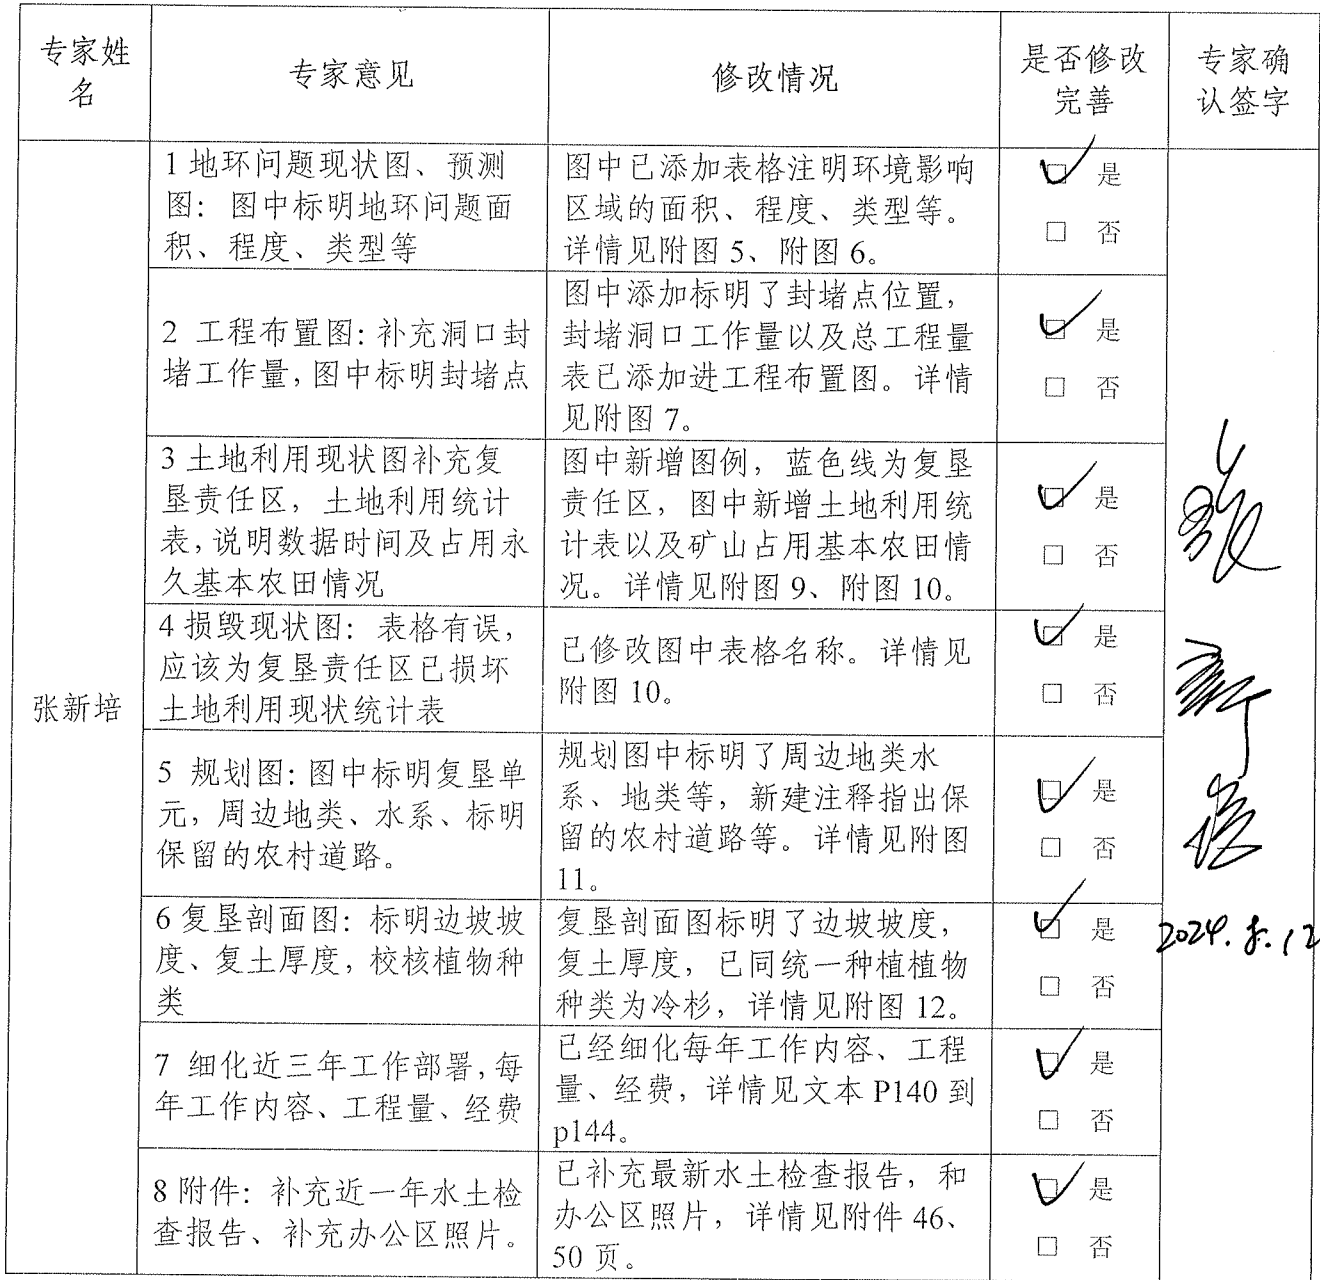 专家姓名
专家意见
修改情况
是否修改完善
专家确认签字
张新培
1 地环问题现状图、预测
图：图中标明地环问题面
积、程度、类型等
图中已添加表格注明环境影响
区域的面积、程度、类型等。
详情见附图 5、附图 6。
☑ 是
□ 否
2 工程布置图：补充洞口封
堵工作量，图中标明封堵点
图中添加标明了封堵点位置，
封堵洞口工作量以及总工程量
表已添加进工程布置图。详情
见附图 7。
☑ 是
□ 否
3 土地利用现状图补充复
垦责任区，土地利用统计
表，说明数据时间及占用永
久基本农田情况
图中新增图例，蓝色线为复垦
责任区，图中新增土地利用统
计表以及矿山占用基本农田情
况。详情见附图 9、附图 10。
☑ 是
□ 否
4 损毁现状图：表格有误，
应该为复垦责任区已损坏
土地利用现状统计表
已修改图中表格名称。详情见
附图 10。
☑ 是
□ 否
5 规划图：图中标明复垦单
元，周边地类、水系、标明
保留的农村道路。
规划图中标明了周边地类水
系、地类等，新建注释指出保
留的农村道路等。详情见附图
11。
☑ 是
□ 否
6 复垦剖面图：标明边坡坡
度、复土厚度，校核植物种
类
复垦剖面图标明了边坡坡度，
复土厚度，已同统一种植植物
种类为冷杉，详情见附图 12。
☑ 是
□ 否
7 细化近三年工作部署，每
年工作内容、工程量、经费
已经细化每年工作内容、工程
量、经费，详情见文本 P140 到
p144。
☑ 是
□ 否
8 附件：补充近一年水土检
查报告、补充办公区照片。
已补充最新水土检查报告，和
办公区照片，详情见附件 46、
50 页。
☑ 是
□ 否
张新培
2024.8.12